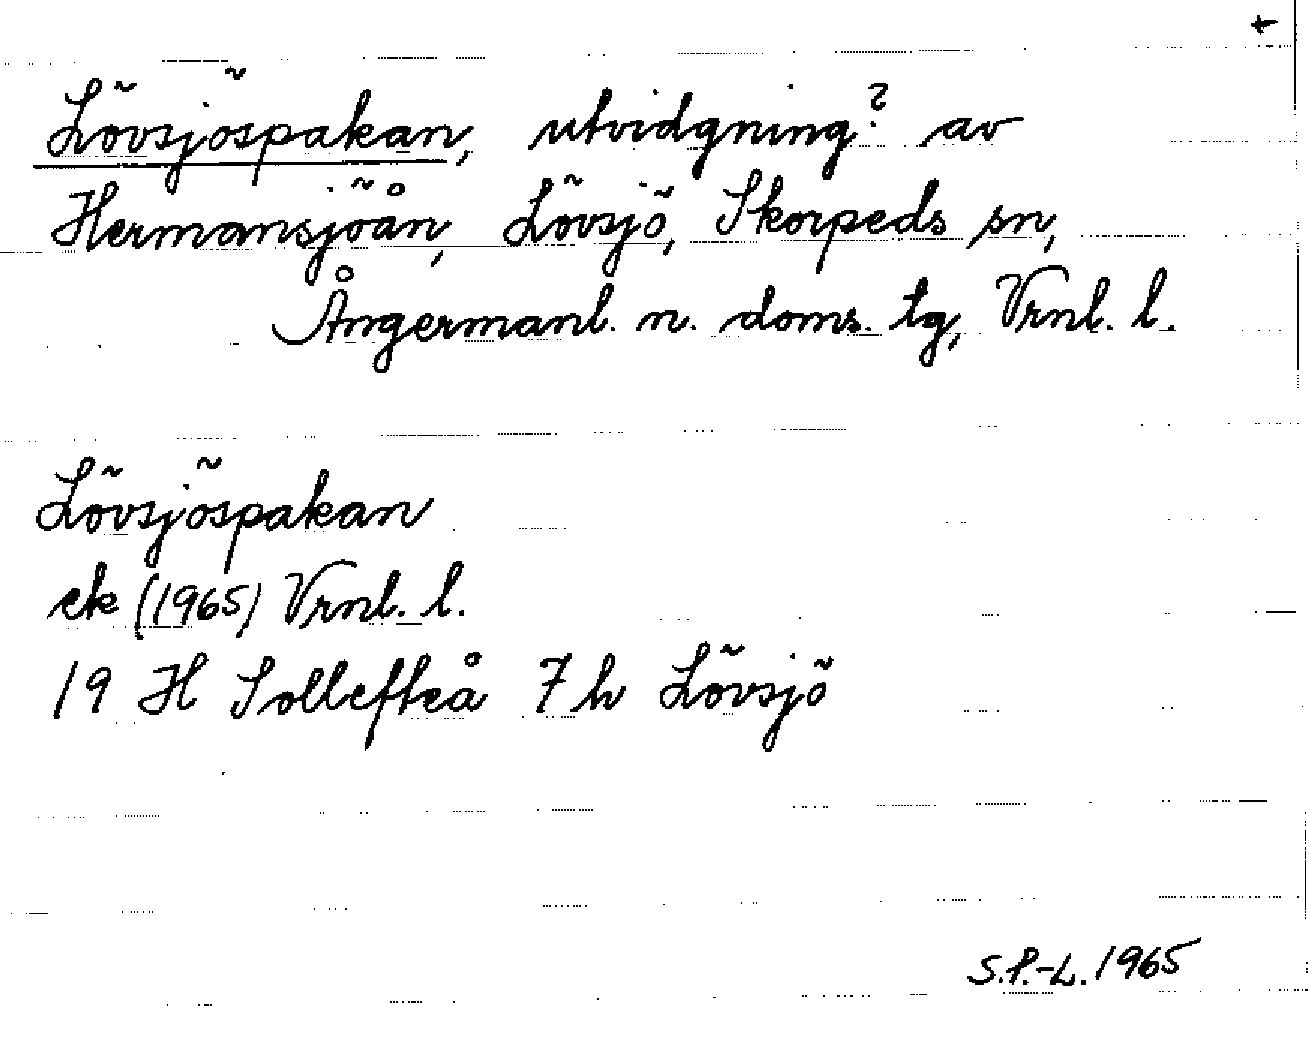 +
Lövsjöspakan, utvidgning? av
Hermansjöån, Lövsjö, Skorpeds sn,
Ångermanl. n. doms. tg, Vrnl. l.
Lövsjöspakan
ek (1965) Vrnl. l.
19 H Sollefteå 7h Lövsjö
S.P.-L. 1965